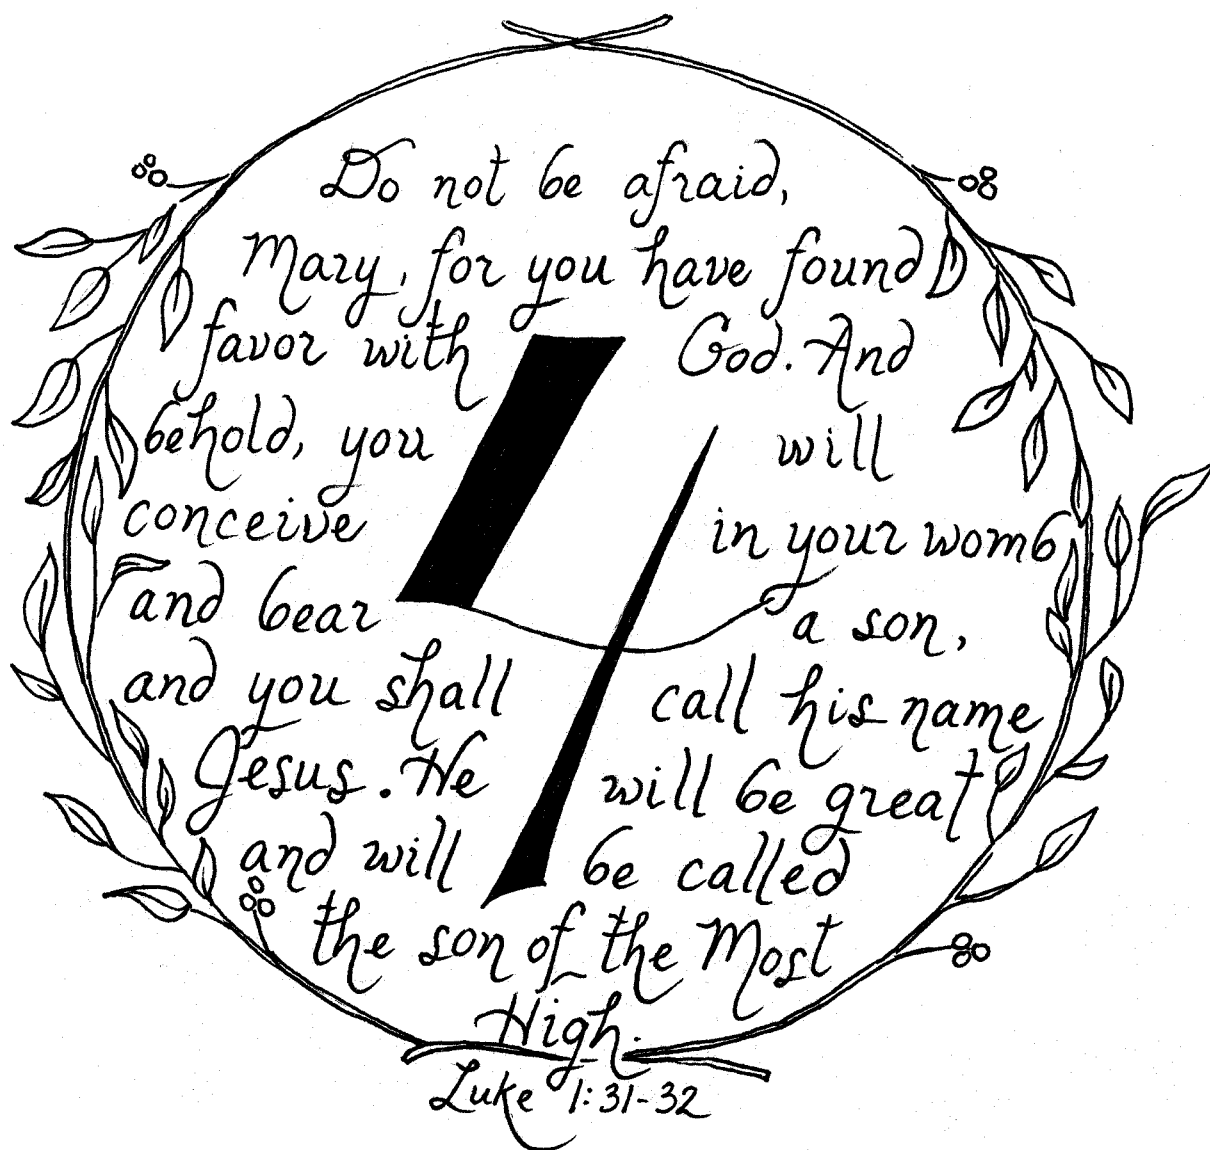 Do not be afraid,
Mary, for you have found
favor with God. And
behold, you will
conceive in your womb
and bear a son,
and you shall call his name
Jesus. He will be great
and will be called
the son of the Most
High.
Luke 1:31-32
4